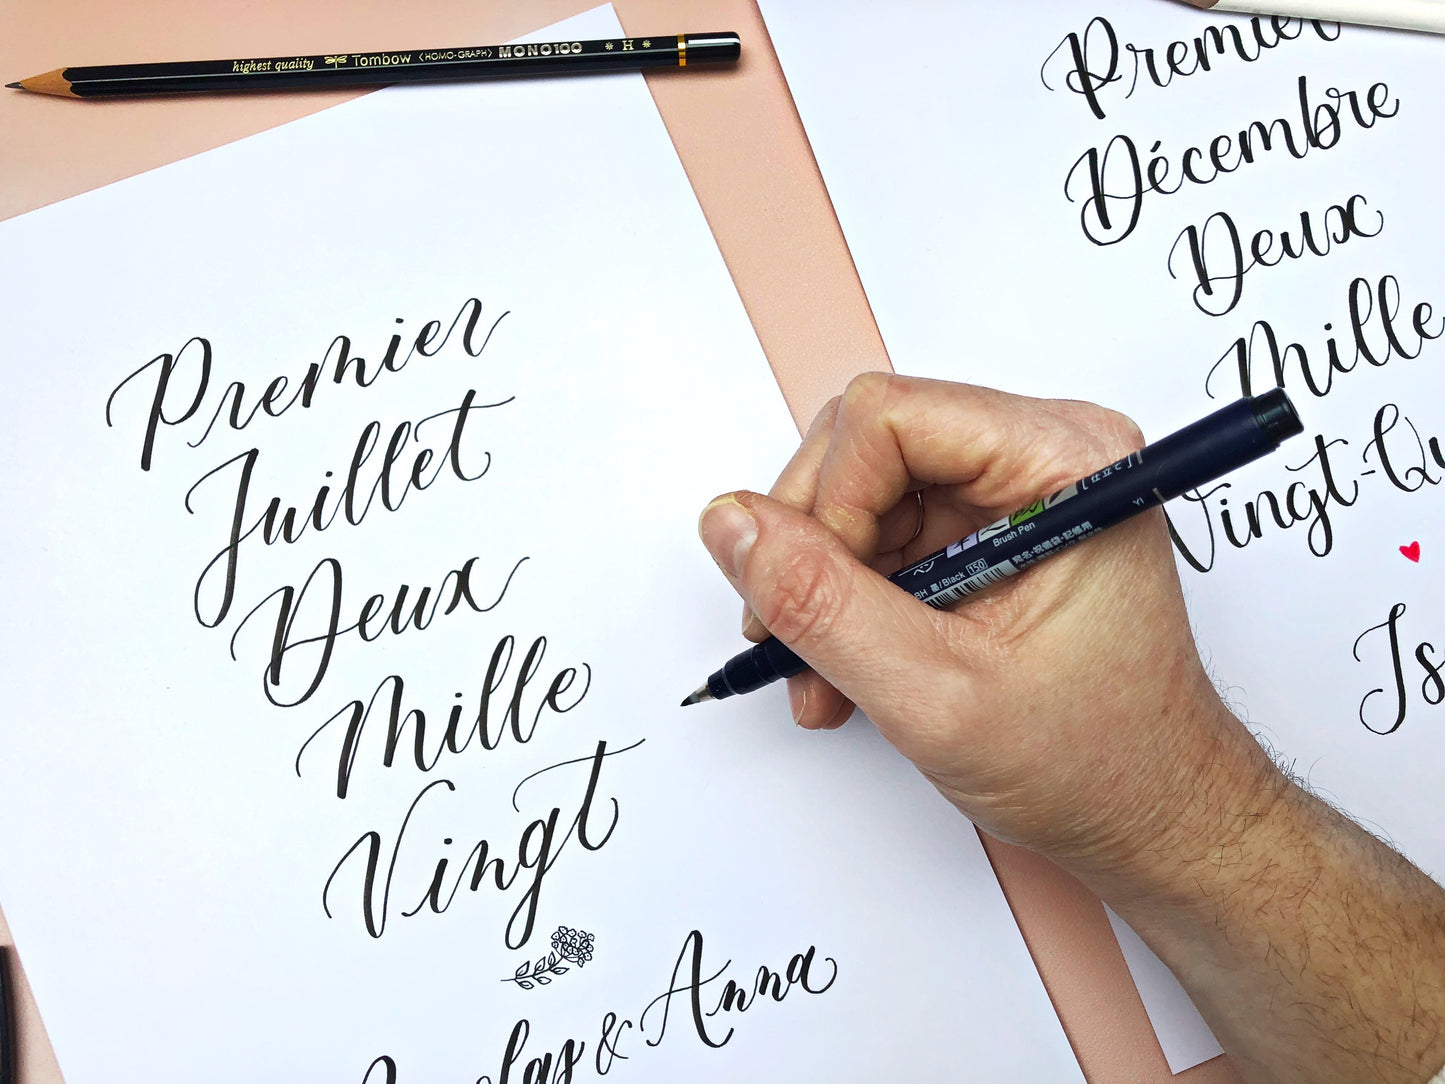 highest quality Tombow <HOMO-GRAPH> MONO100 * H *
Premier
Juillet
Deux
Mille
Vingt
& Anna
Premier
Décembre
Deux
Mille
Vingt-Qu
Is
Brush Pen
黒/Black 150
宛名・祝儀袋・記帳用